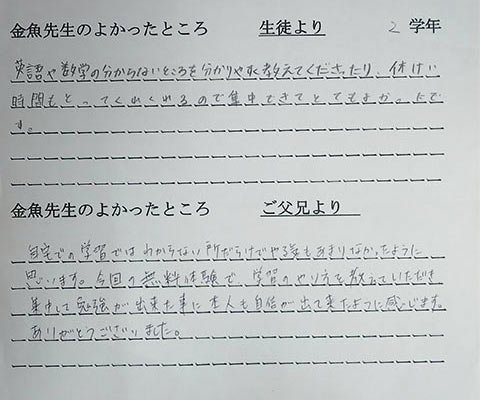 金魚先生のよかったところ 生徒より 2 学年
英語や数学の分からないところを分かりやすく教えてくださったり、休けい
時間もとってくれくれるので集中できてとてもよかったで
す。
金魚先生のよかったところ ご父兄より
自宅での学習ではわからない所だらけでやる気もあまりなかったように
思います。今回の無料体験で、学習のやり方を教えていただき
集中して勉強が出来た事に本人も自信が出て来たように感じます。
ありがとうございました。